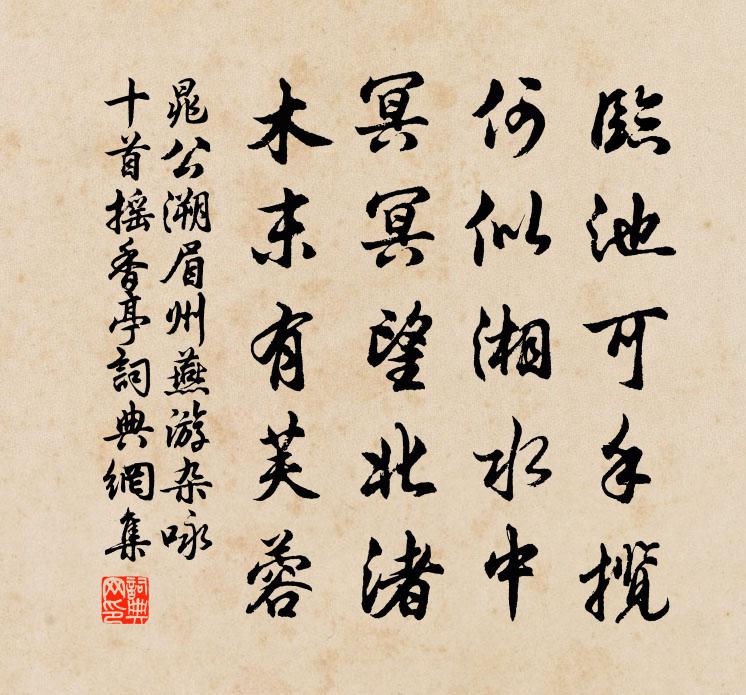 臨池可手攬
何似湘水中
冥冥望北渚
木末有芙蓉
晁公溯眉州燕游杂咏
十首摇香亭詞典網集
詞典
网印